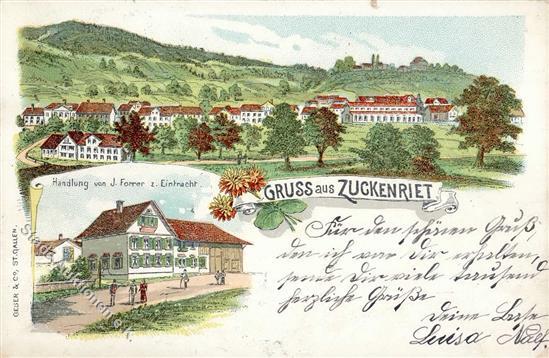 Handlung von J. Forrer z. Eintracht.
GRUSS aus ZUCKENRIET
GEBER & Co. ST. GALLEN.
Für den schönen Gruß,
den ich von dir erhalten,
sende Dir viele tausend
herzliche Grüße
Deine Base
Luisa Näf.